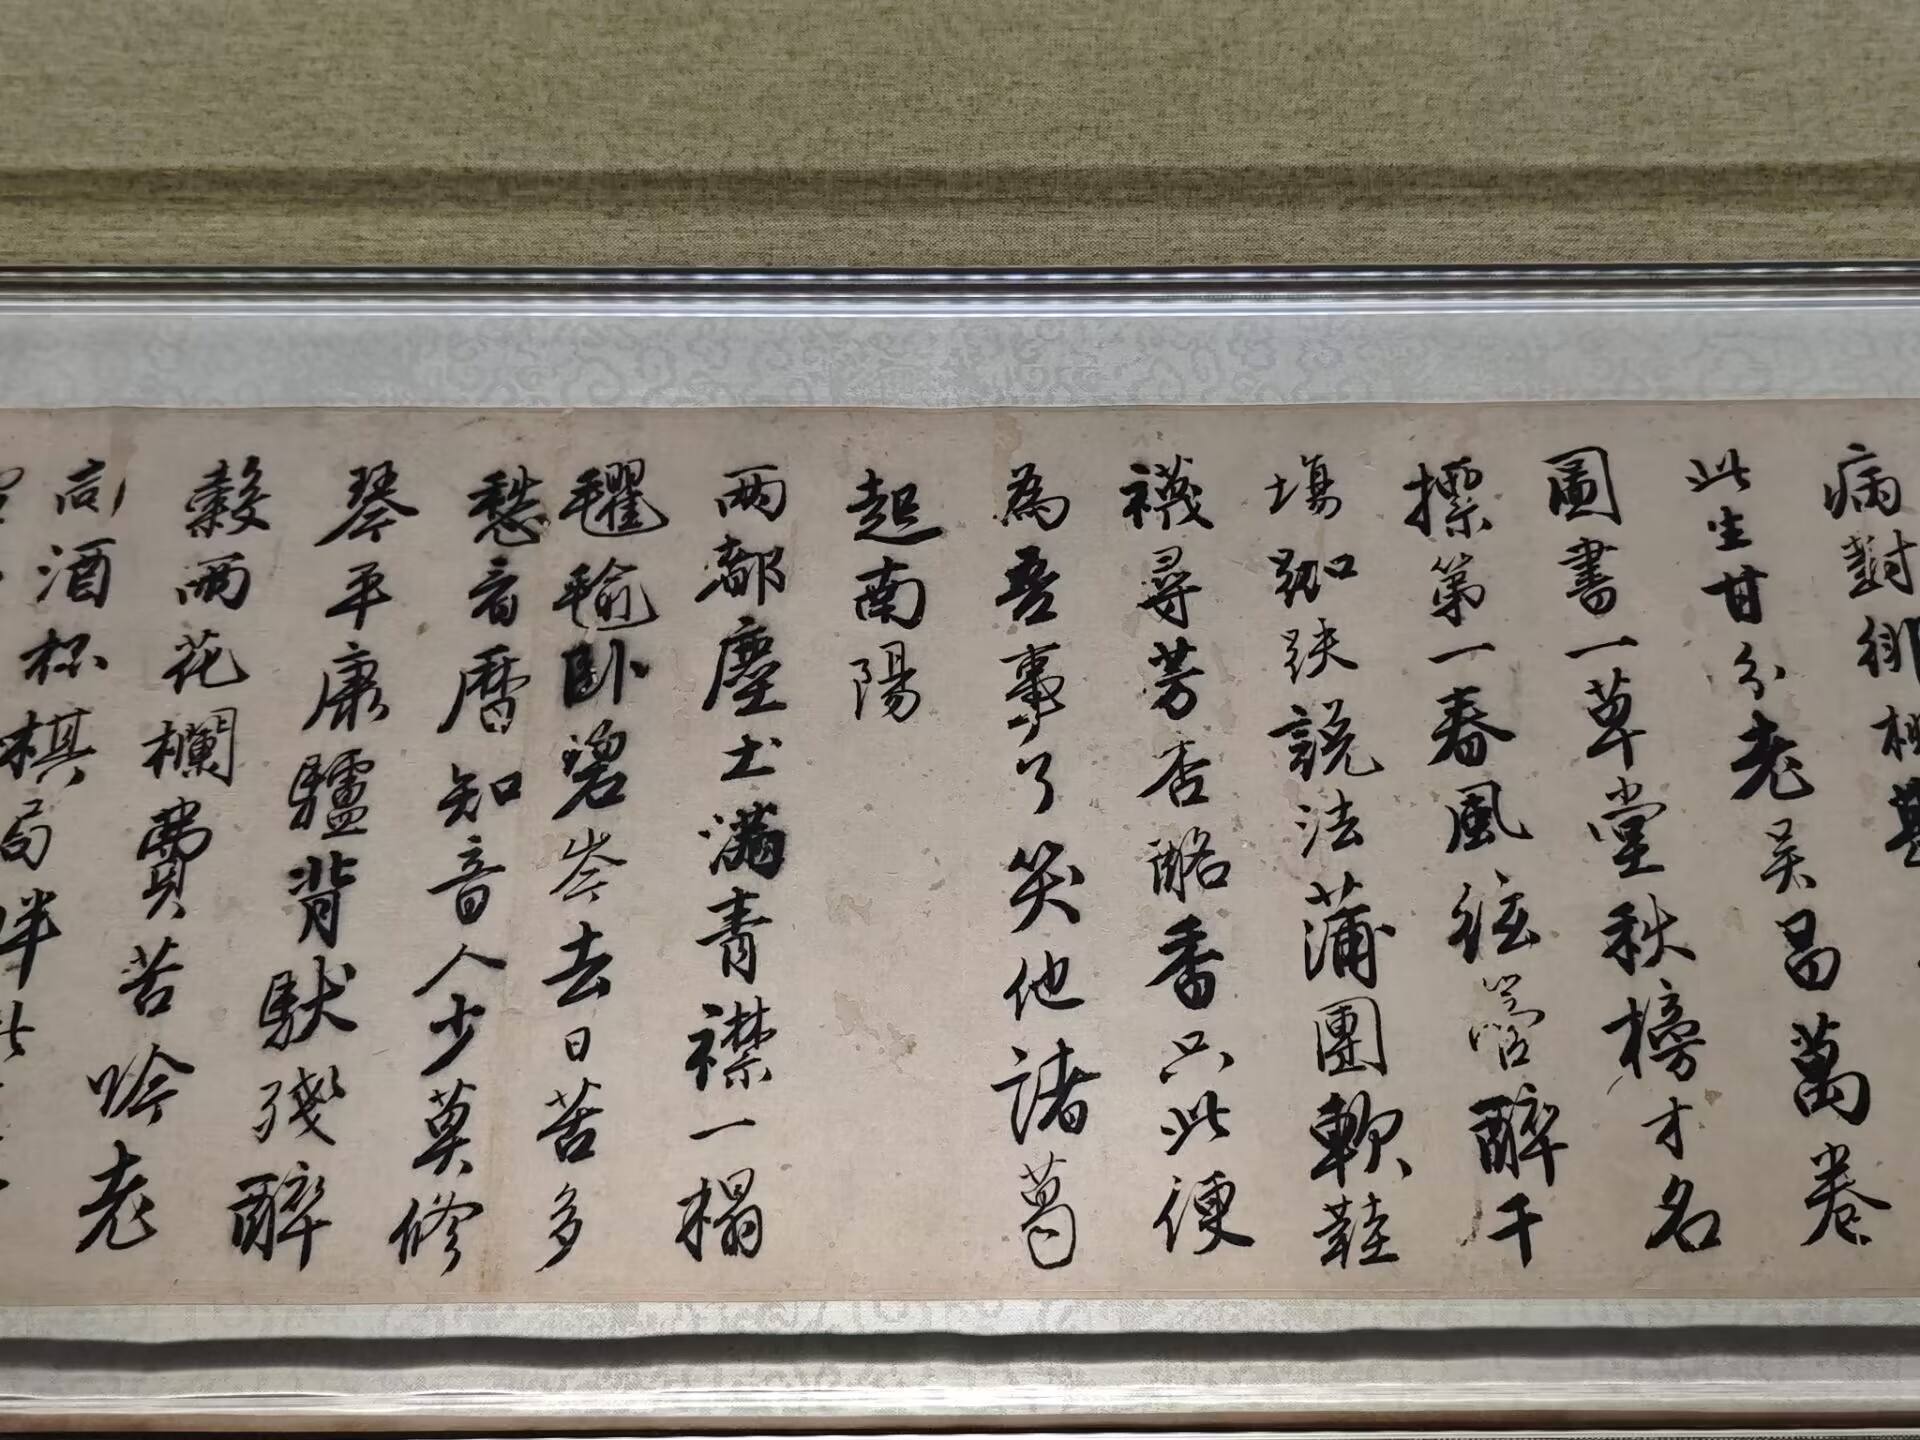 病對緋桃
此生甘分老吳昌萬卷
圖書一草堂秋榜才名
標第一春風絃管醉千
塲跏趺說法蒲團軟鞋
襪尋芳杏酪香只此便
為吾事了笑他諸葛
起南陽
兩都塵土滿青襟一榻
氍毹臥碧岑去日苦多
愁看曆知音人少莫修
琴平康驢背馱殘醉
穀雨花欄費苦吟老
向酒杯棋局畔此